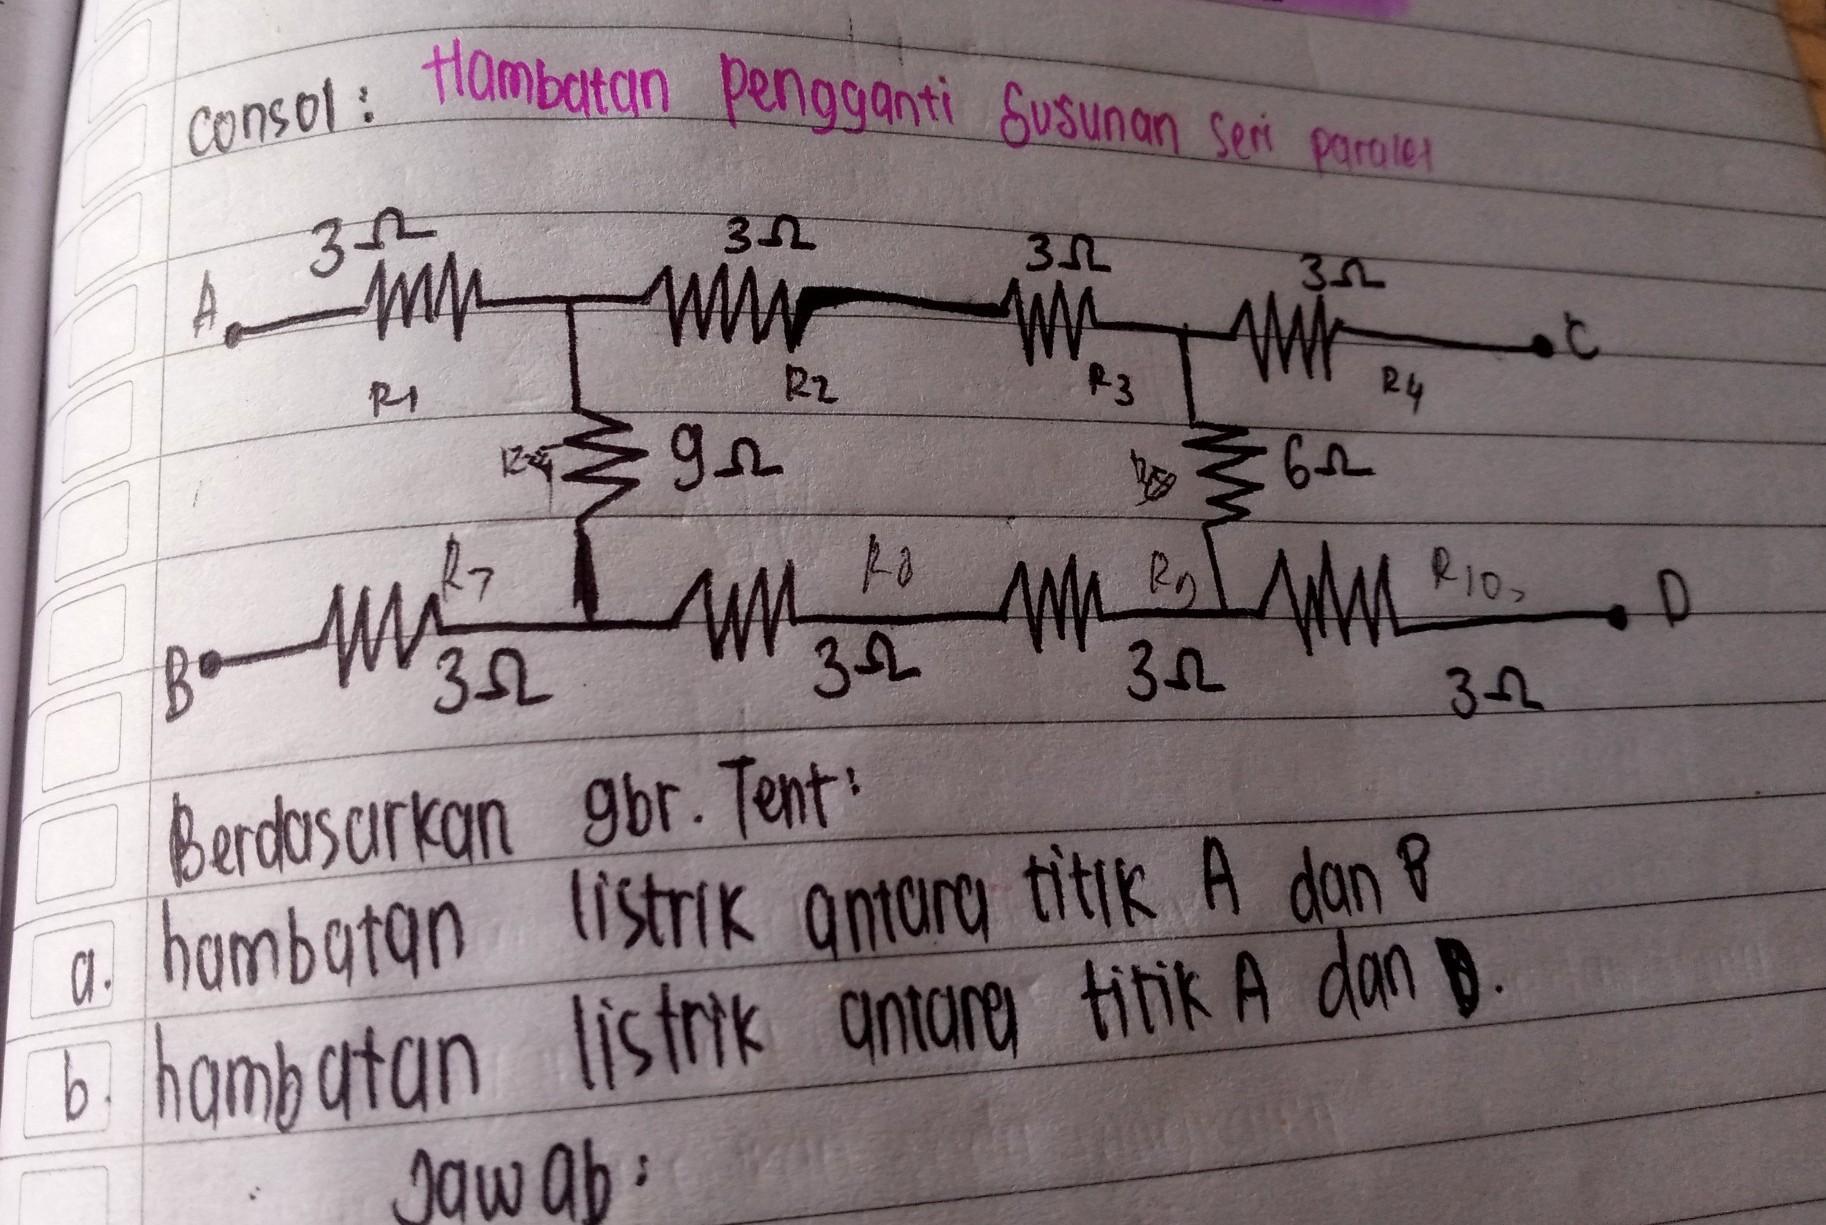 consol: Hambatan Pengganti Susunan seri paralel
3Ω 3Ω 3Ω 3Ω
A C
R1 R2 R3 R4
9Ω 6Ω
R7 R8 R9 R10
B D
3Ω 3Ω 3Ω 3Ω
Berdasarkan gbr. Tent:
a. hambatan listrik antara titik A dan B
b. hambatan listrik antara titik A dan D.
Jawab: